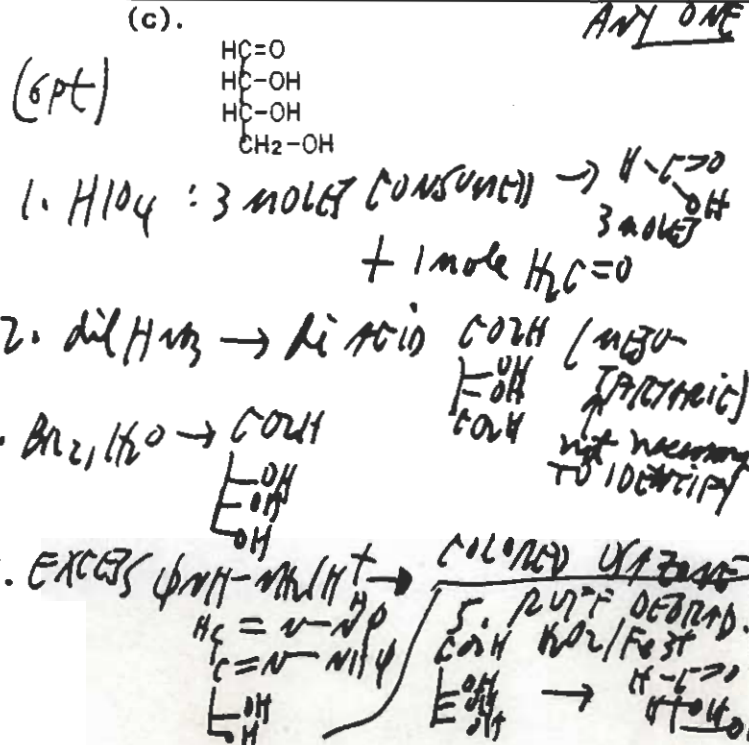 (c).
ANY ONE
(6pt)
HC=O
HC-OH
HC-OH
CH2-OH
1. HIO4 : 3 MOLES CONSUMED → H-C=O
OH
3 moles
+ 1 mole H2C=O
2. dil HNO3 → Di ACID CO2H (MESO-
OH
OH
CO2H
TARTARIC)
not necessary
TO IDENTIFY
. Br2, H2O → CO2H
OH
OH
OH
. EXCESS ϕNH-NH2/H+ → COLORED OSAZONE
HC=N-NHϕ
C=N-NHϕ
OH
5. RUFF DEGRAD.
CO2H H2O2/Fe3+
OH
OH
OH
→ H-C=O